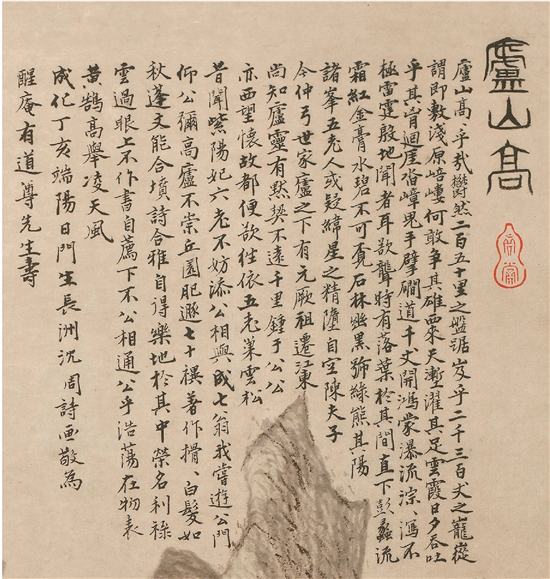 廬山高
廬山高高乎哉鬱然二百五十里之盤踞岌乎二千三百丈之巃嵸
謂即敷淺原嶇嶁何敢爭其雄西來天塹濯其足雲霞日夕吞吐
乎其胸迴崖沓嶂鬼手擘磵道千丈開鴻蒙瀑流淙淙瀉不
極雷霆殷地聞者耳欲聾時有落葉於其間直下彭蠡流
霜紅金膏水碧不可覓石林幽黑號綠熊其陽
諸峯五老人或疑緯星之精墮自空陳夫子
今仲弓世家廬之下有元厥祖遷江東
尚知廬靈有默契不遠千里鍾于公公
亦西望懷故都便欲往依五老巢雲松
昔聞紫陽妃六老不妨添公相與成七翁我嘗遊公門
仰公彌高廬不崇丘園肥遯七十禩著作搰搰白髮如
秋蓬文能合墳詩合雅自得樂地於其中榮名利祿
雲過眼上不作書自薦下不公相通公乎浩蕩在物表
黃鵠高舉凌天風
成化丁亥端陽日門生長洲沈周詩画敬為
醒庵有道尊先生壽